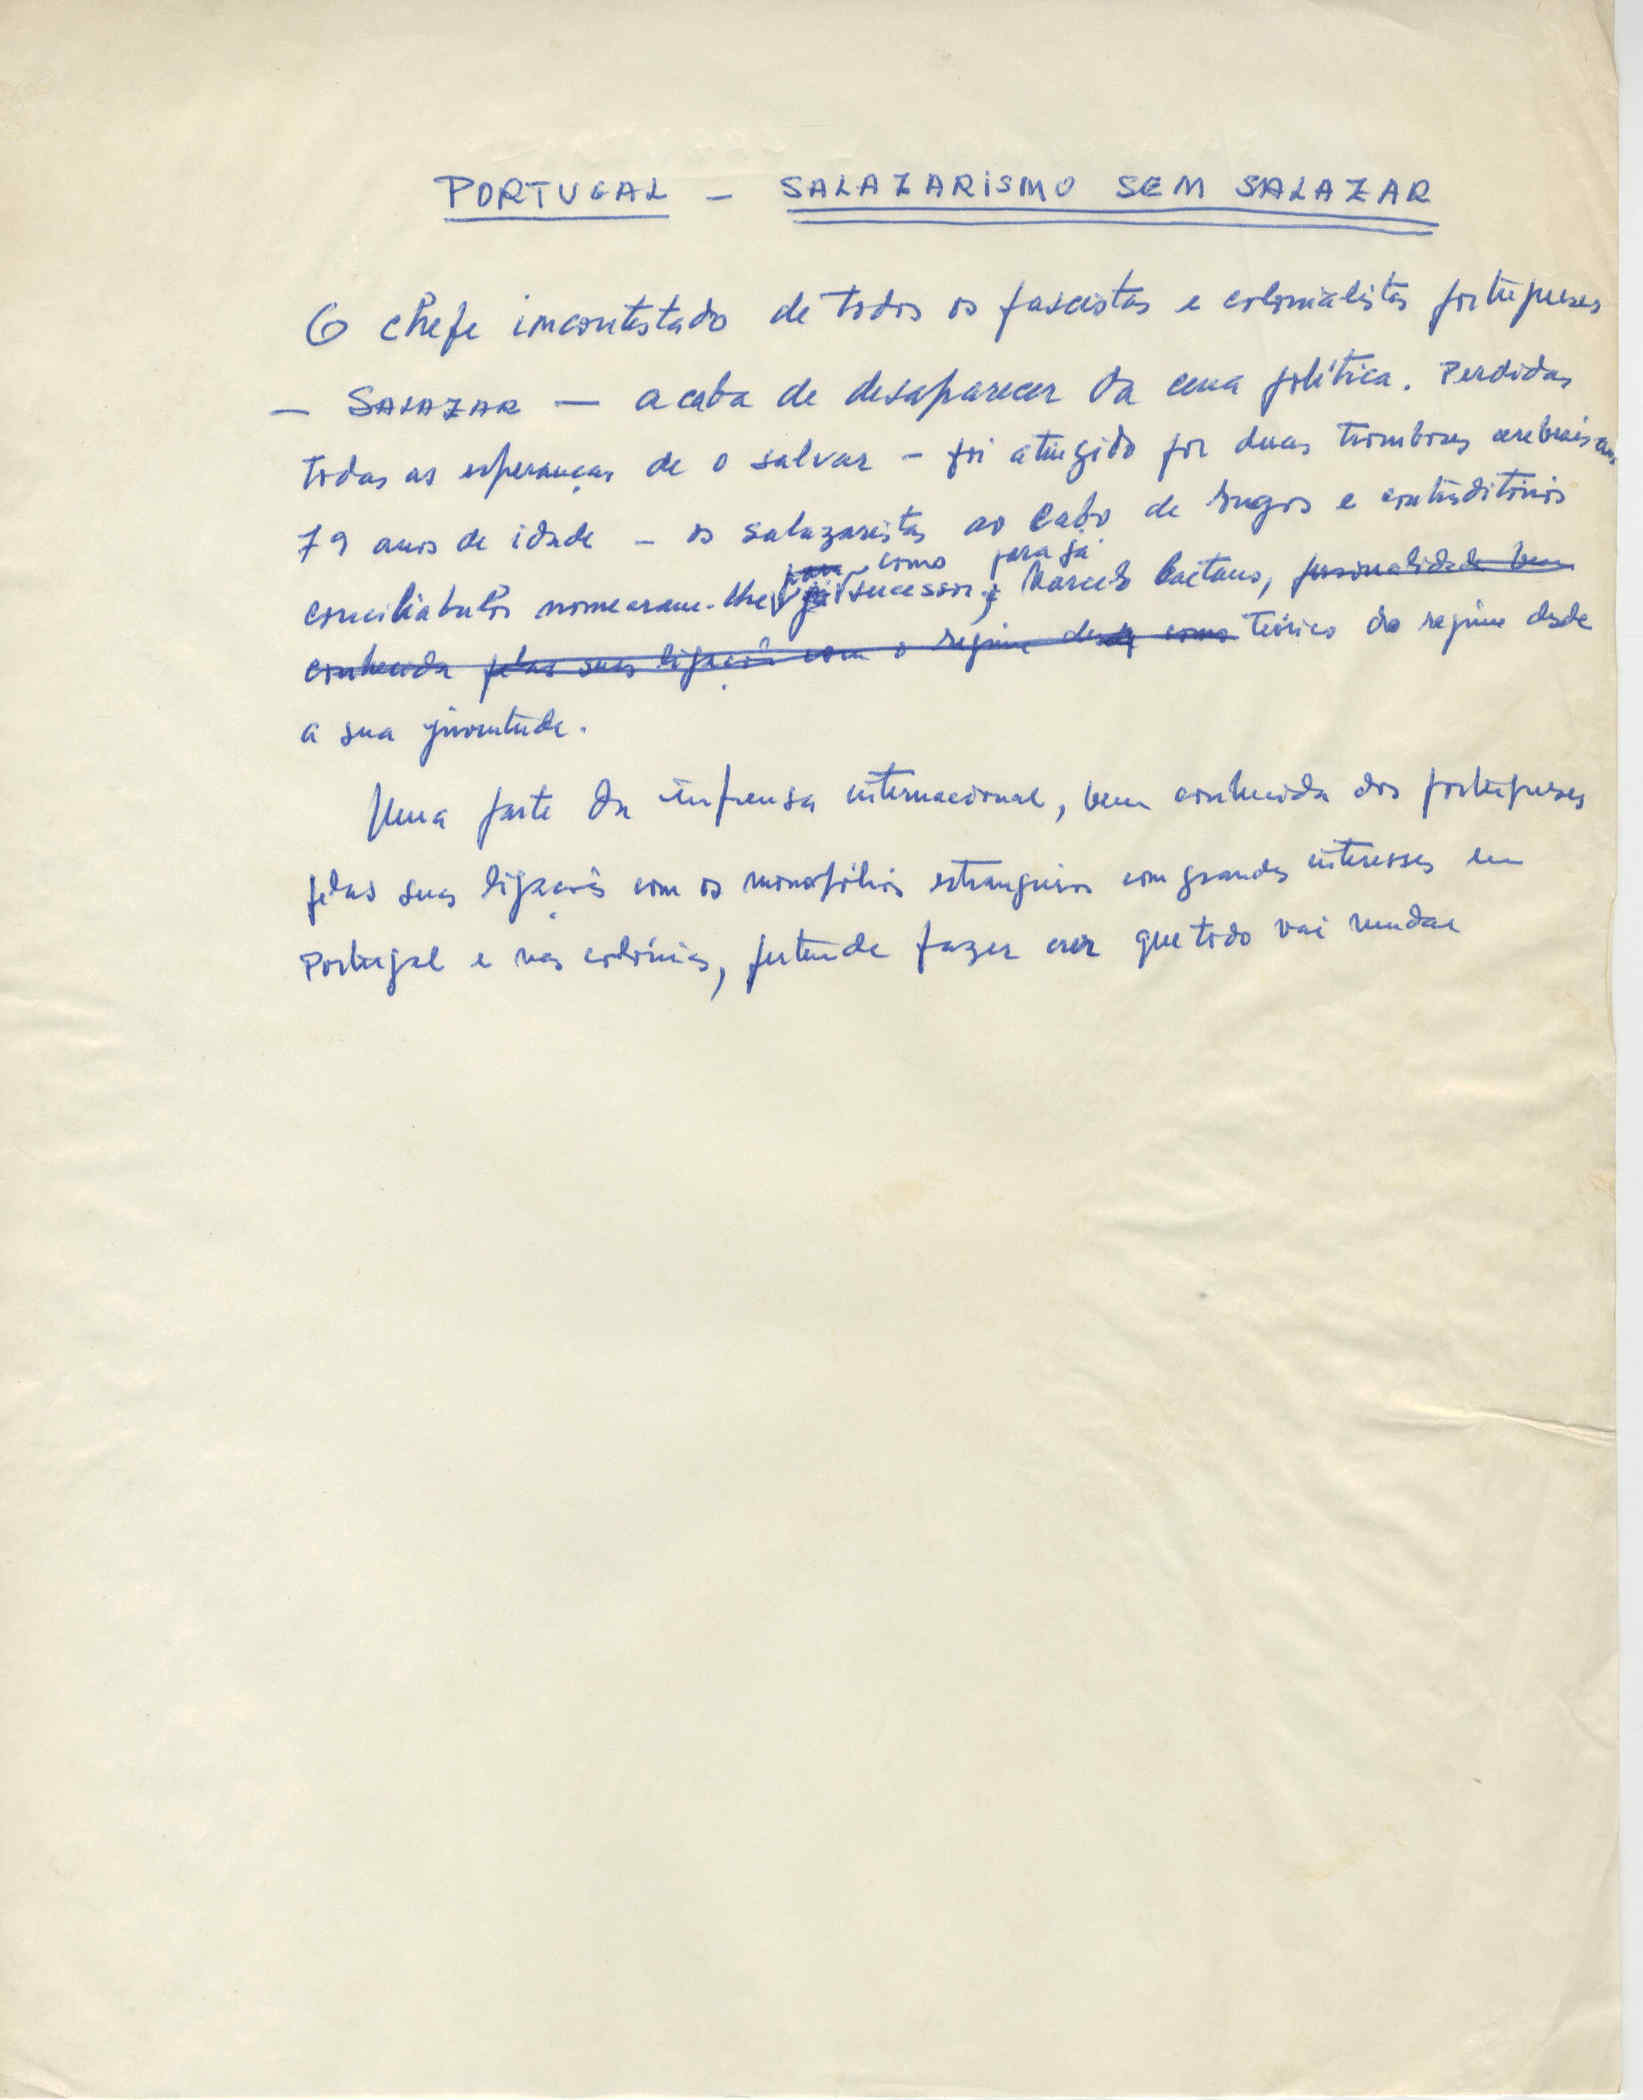 PORTUGAL - SALAZARISMO SEM SALAZAR
O chefe incontestado de todos os fascistas e colonialistas portugueses
- SALAZAR - acaba de desaparecer da cena política. Perdidas
todas as esperanças de o salvar - foi atingido por duas tromboses cerebrais aos
79 anos de idade - os salazaristas ao cabo de longos e contraditórios
como para já
conciliabulos nomearam-lhe sucessor, Marcelo Caetano, personalidade bem
conhecida pelas suas ligações com o regime desde como teórico do regime desde
a sua juventude.
Uma parte da imprensa internacional, bem conhecida dos portugueses
pelas suas ligações com os monopólios estrangeiros com grandes interesses em
Portugal e nas colónias, pretende fazer crer que todo vai mudar